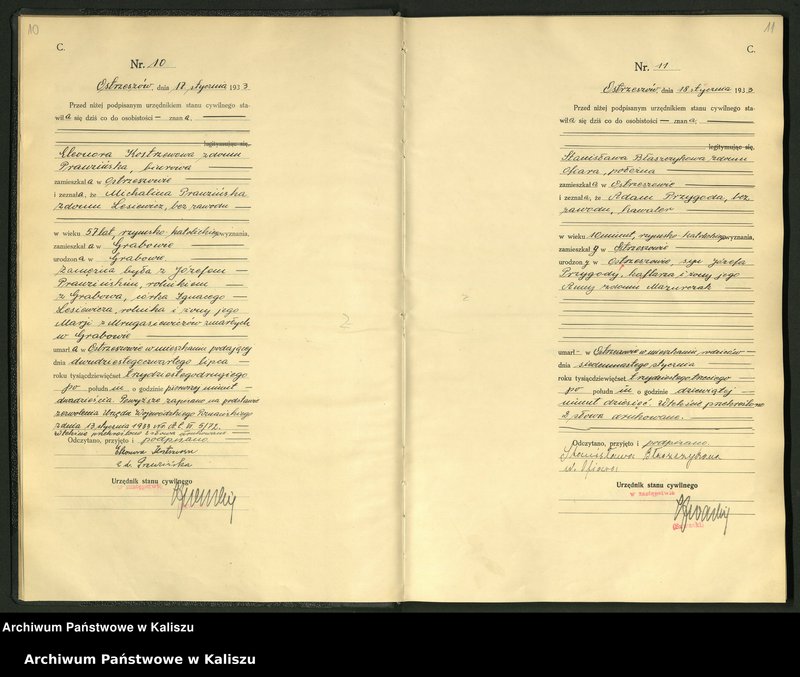 10
C.
Nr. 10
Ostrzeszów, dnia 17, stycznia 1933
Przed niżej podpisanym urzędnikiem stanu cywilnego sta-
wiła się dziś co do osobistości — znana.
legitymując się,
Eleonora Kostrzewowa z domu
Prawzińska, biurowa
zamieszkała w Ostrzeszowie
i zeznała, że Michalina Prawzińska
z domu Lesiewicz, bez zawodu
w wieku 57 lat, rzymsko katolickiego wyznania,
zamieszkała w Grabowie
urodzona w Grabowie
zamężna była z Józefem
rolnikiem
z Grabowa, córka Ignacego
Lesiewicza, rolnika i żony jego
Marji z zmarłych
w Grabowie
umarła w Ostrzeszowie w mieszkaniu podającej
dnia dwudziestegoczwartego lipca
roku tysiącdziewięćset trzydziestegodrugiego
po południu o godzinie pierwszej minut
dwadzieścia. Powyższe zapisano na podstawie
zezwolenia Urzędu Wojewódzkiego Poznańskiego
z dnia 13 stycznia 1933
Odczytano, przyjęto i podpisano
Eleonora
z d. Prawzińska
Urzędnik stanu cywilnego
w zastępstwie
11
C.
Nr. 11
Ostrzeszów, dnia 18 stycznia 1933.
Przed niżej podpisanym urzędnikiem stanu cywilnego sta-
wiła się dziś co do osobistości — znana.
legitymując się,
Stanisława Błaszczykowa z domu
Ofiara, położna
zamieszkała w Ostrzeszowie
i zeznała, że Adam Przygoda, bez
zawodu, kawaler
w wieku 10 minut, rzymsko katolickiego wyznania,
zamieszkały w Ostrzeszowie
urodzony w Ostrzeszowie, syn Józefa
Przygody, kaflarza i żony jego
Anny z domu Mazurczak
umarł — w Ostrzeszowie w mieszkaniu rodziców
dnia siedemnastego stycznia
roku tysiącdziewięćset trzydziestego trzeciego
po południu o godzinie dziewiątej
minut dziesięć. Wtóre przekreślono
2 słowa drukowane.
Odczytano, przyjęto i podpisano.
Stanisława Błaszczykowa
Urzędnik stanu cywilnego
w zastępstwie
Archiwum Państwowe w Kaliszu
Archiwum Państwowe w Kaliszu